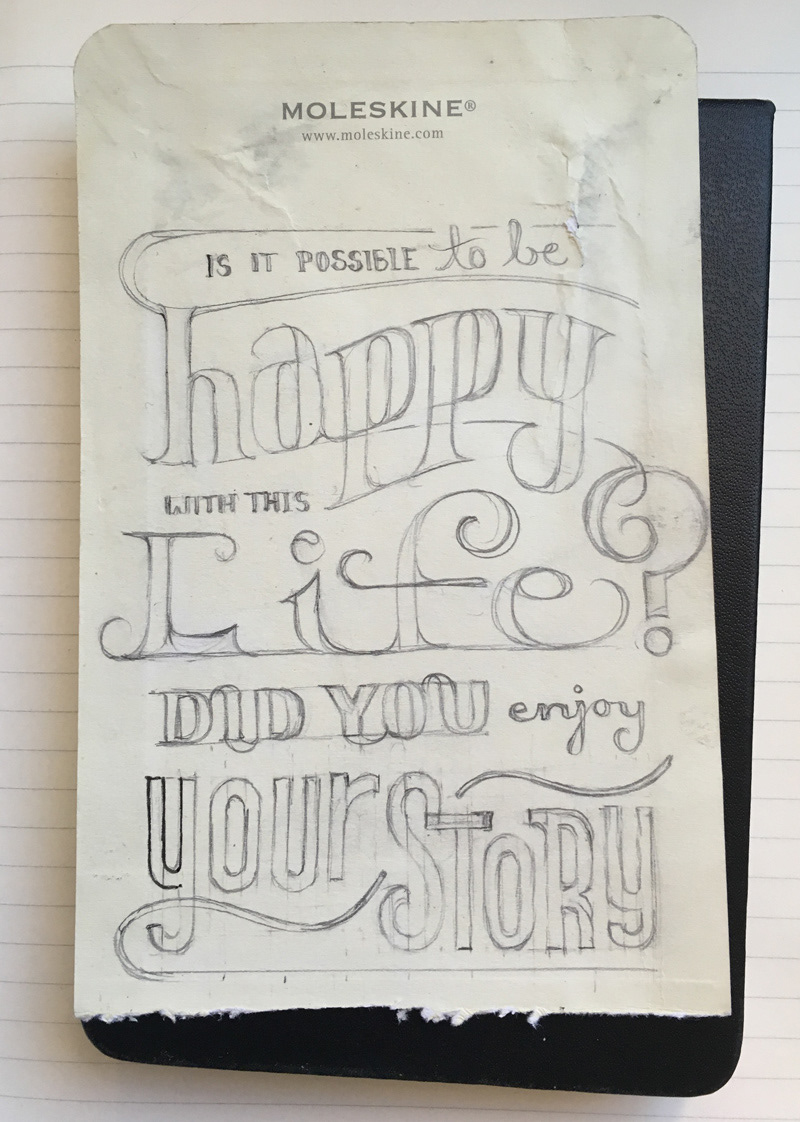 MOLESKINE®
www.moleskine.com
IS IT POSSIBLE to be
happy
WITH THIS
Life?
DID YOU enjoy
your SToRY